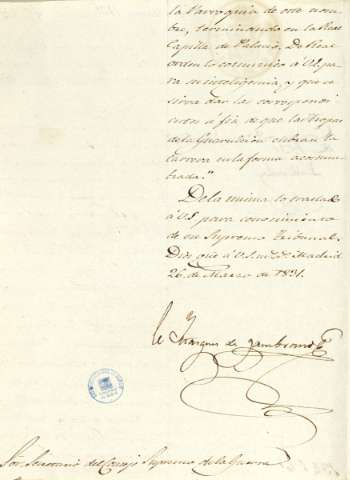 la Parroquia de este nom-
bre, terminando en la Real
Capilla de Palacio. De Real
orden lo comunico à V.E. pa-
ra su inteligencia, y que se
sirva dar la correspondi
à fin de que las tropas
de la Guarnicion cubran la
carrera en la forma acostum-
brada."
De la misma lo traslado
à V.S. para conocimiento
de ese Supremo Tribunal.
Dios gue à V.S. m.s a.s Madrid
26 de Marzo de 1831.
El Marques de Zambrano
Sor. Secretario del Consejo Supremo de la Guerra